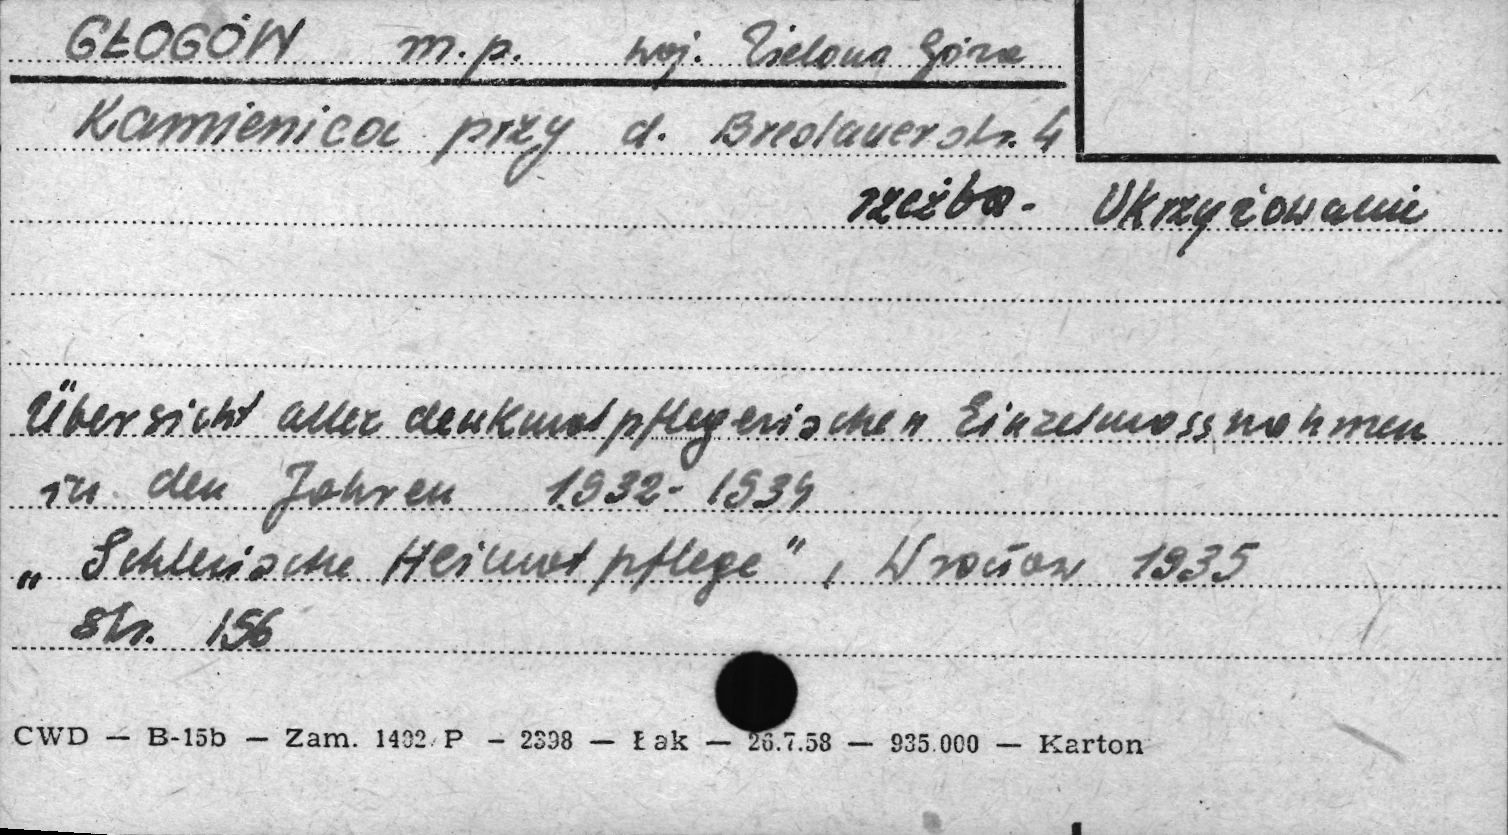 GŁOGÓW m.p. woj. Zielona Góra
Kamienica przy d. Breslauerstr. 4
rzeźba - Ukrzyżowanie
Übersicht aller denkmalpflegerischen Einzelmassnahmen
in den Jahren 1932-1934
„Schlesische Heimatpflege", Wrocław 1935
str. 156
CWD — B-15b — Zam. 1402/P — 2398 — Łak — 26.7.58 — 935.000 — Karton